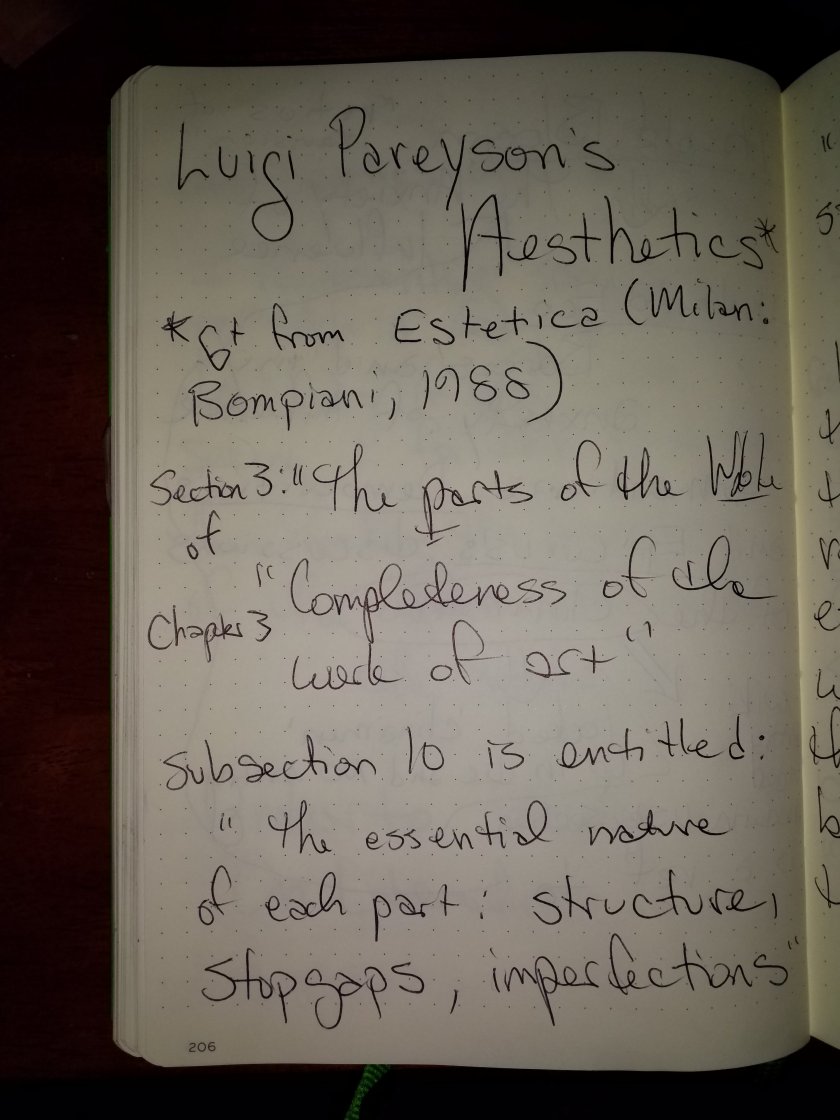 Luigi Pareyson's
Aesthetics*
* from Estetica (Milan:
Bompiani, 1988)
Section 3: "The parts of the Whole
of
"Completeness of the
Chapter 3
work of art"
Subsection 10 is entitled:
" The essential nature
of each part: structure,
Stopgaps, imperfections"
206